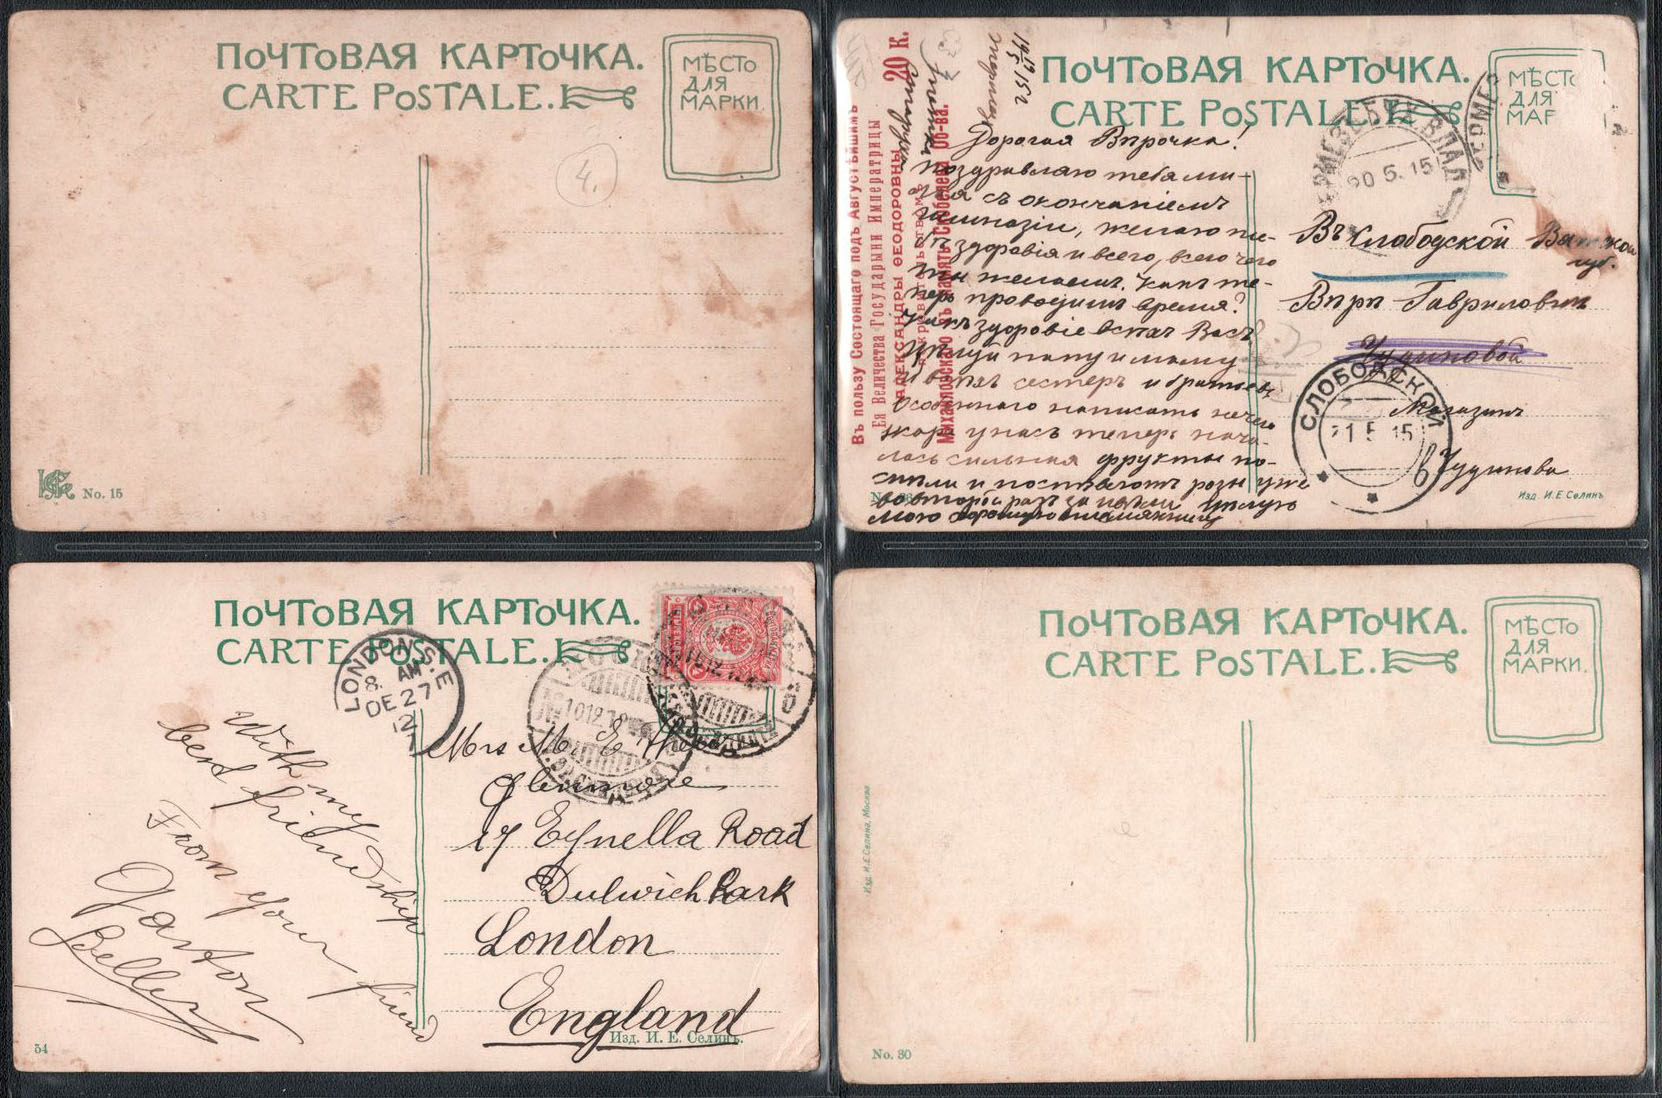 ПОЧТОВАЯ КАРТОЧКА.
CARTE POSTALE.
МѢСТО
ДЛЯ
МАРКИ.
4.
No. 15
ПОЧТОВАЯ КАРТОЧКА.
CARTE POSTALE.
МѢСТО
ДЛЯ
МАР
Въ пользу Состоящаго подъ Августѣйшимъ
Ея Величества Государыни Императрицы
АЛЕКСАНДРЫ ѲЕОДОРОВНЫ
покровительствомъ
Михайловскаго въ память Скобелева Об-ва.
20 К.
Дорогая Вѣрочка!
Поздравляю тебя ми-
лая съ окончаніемъ
гимназіи, желаю те-
бѣ здоровія и всего, всего чего
ты желаешь. Какъ те-
перь проводишь время?
Какъ здоровіе всѣхъ Васъ
Цѣлуй папу и маму
и всѣхъ сестеръ и братьевъ
Особеннаго написать нечего
жара у насъ теперь нача-
лась сильная фрукты по-
спѣли и поспѣваютъ розы уже
во второй разъ цѣлую
мою хорошую
20 5.15
Въ Слободской
губ.
Вѣрѣ Гавриловнѣ
Чудиновой
СЛОБОДСКОЙ
21 5 15
Магазинъ
Чудинова
Изд. И.Е. Селинъ
ПОЧТОВАЯ КАРТОЧКА.
CARTE POSTALE.
LONDON. S.E
8. AM
DE 27
12
1012.12
With my
best friendship
From your friend
Gaston
Beller
Mrs M. E.
Glenmore
17 Eynella Road
Dulwich Park
London
England
Изд. И. Е. Селинъ.
54
ПОЧТОВАЯ КАРТОЧКА.
CARTE POSTALE.
МѢСТО
ДЛЯ
МАРКИ.
Изд. И.Е.Селина, Москва
No. 30